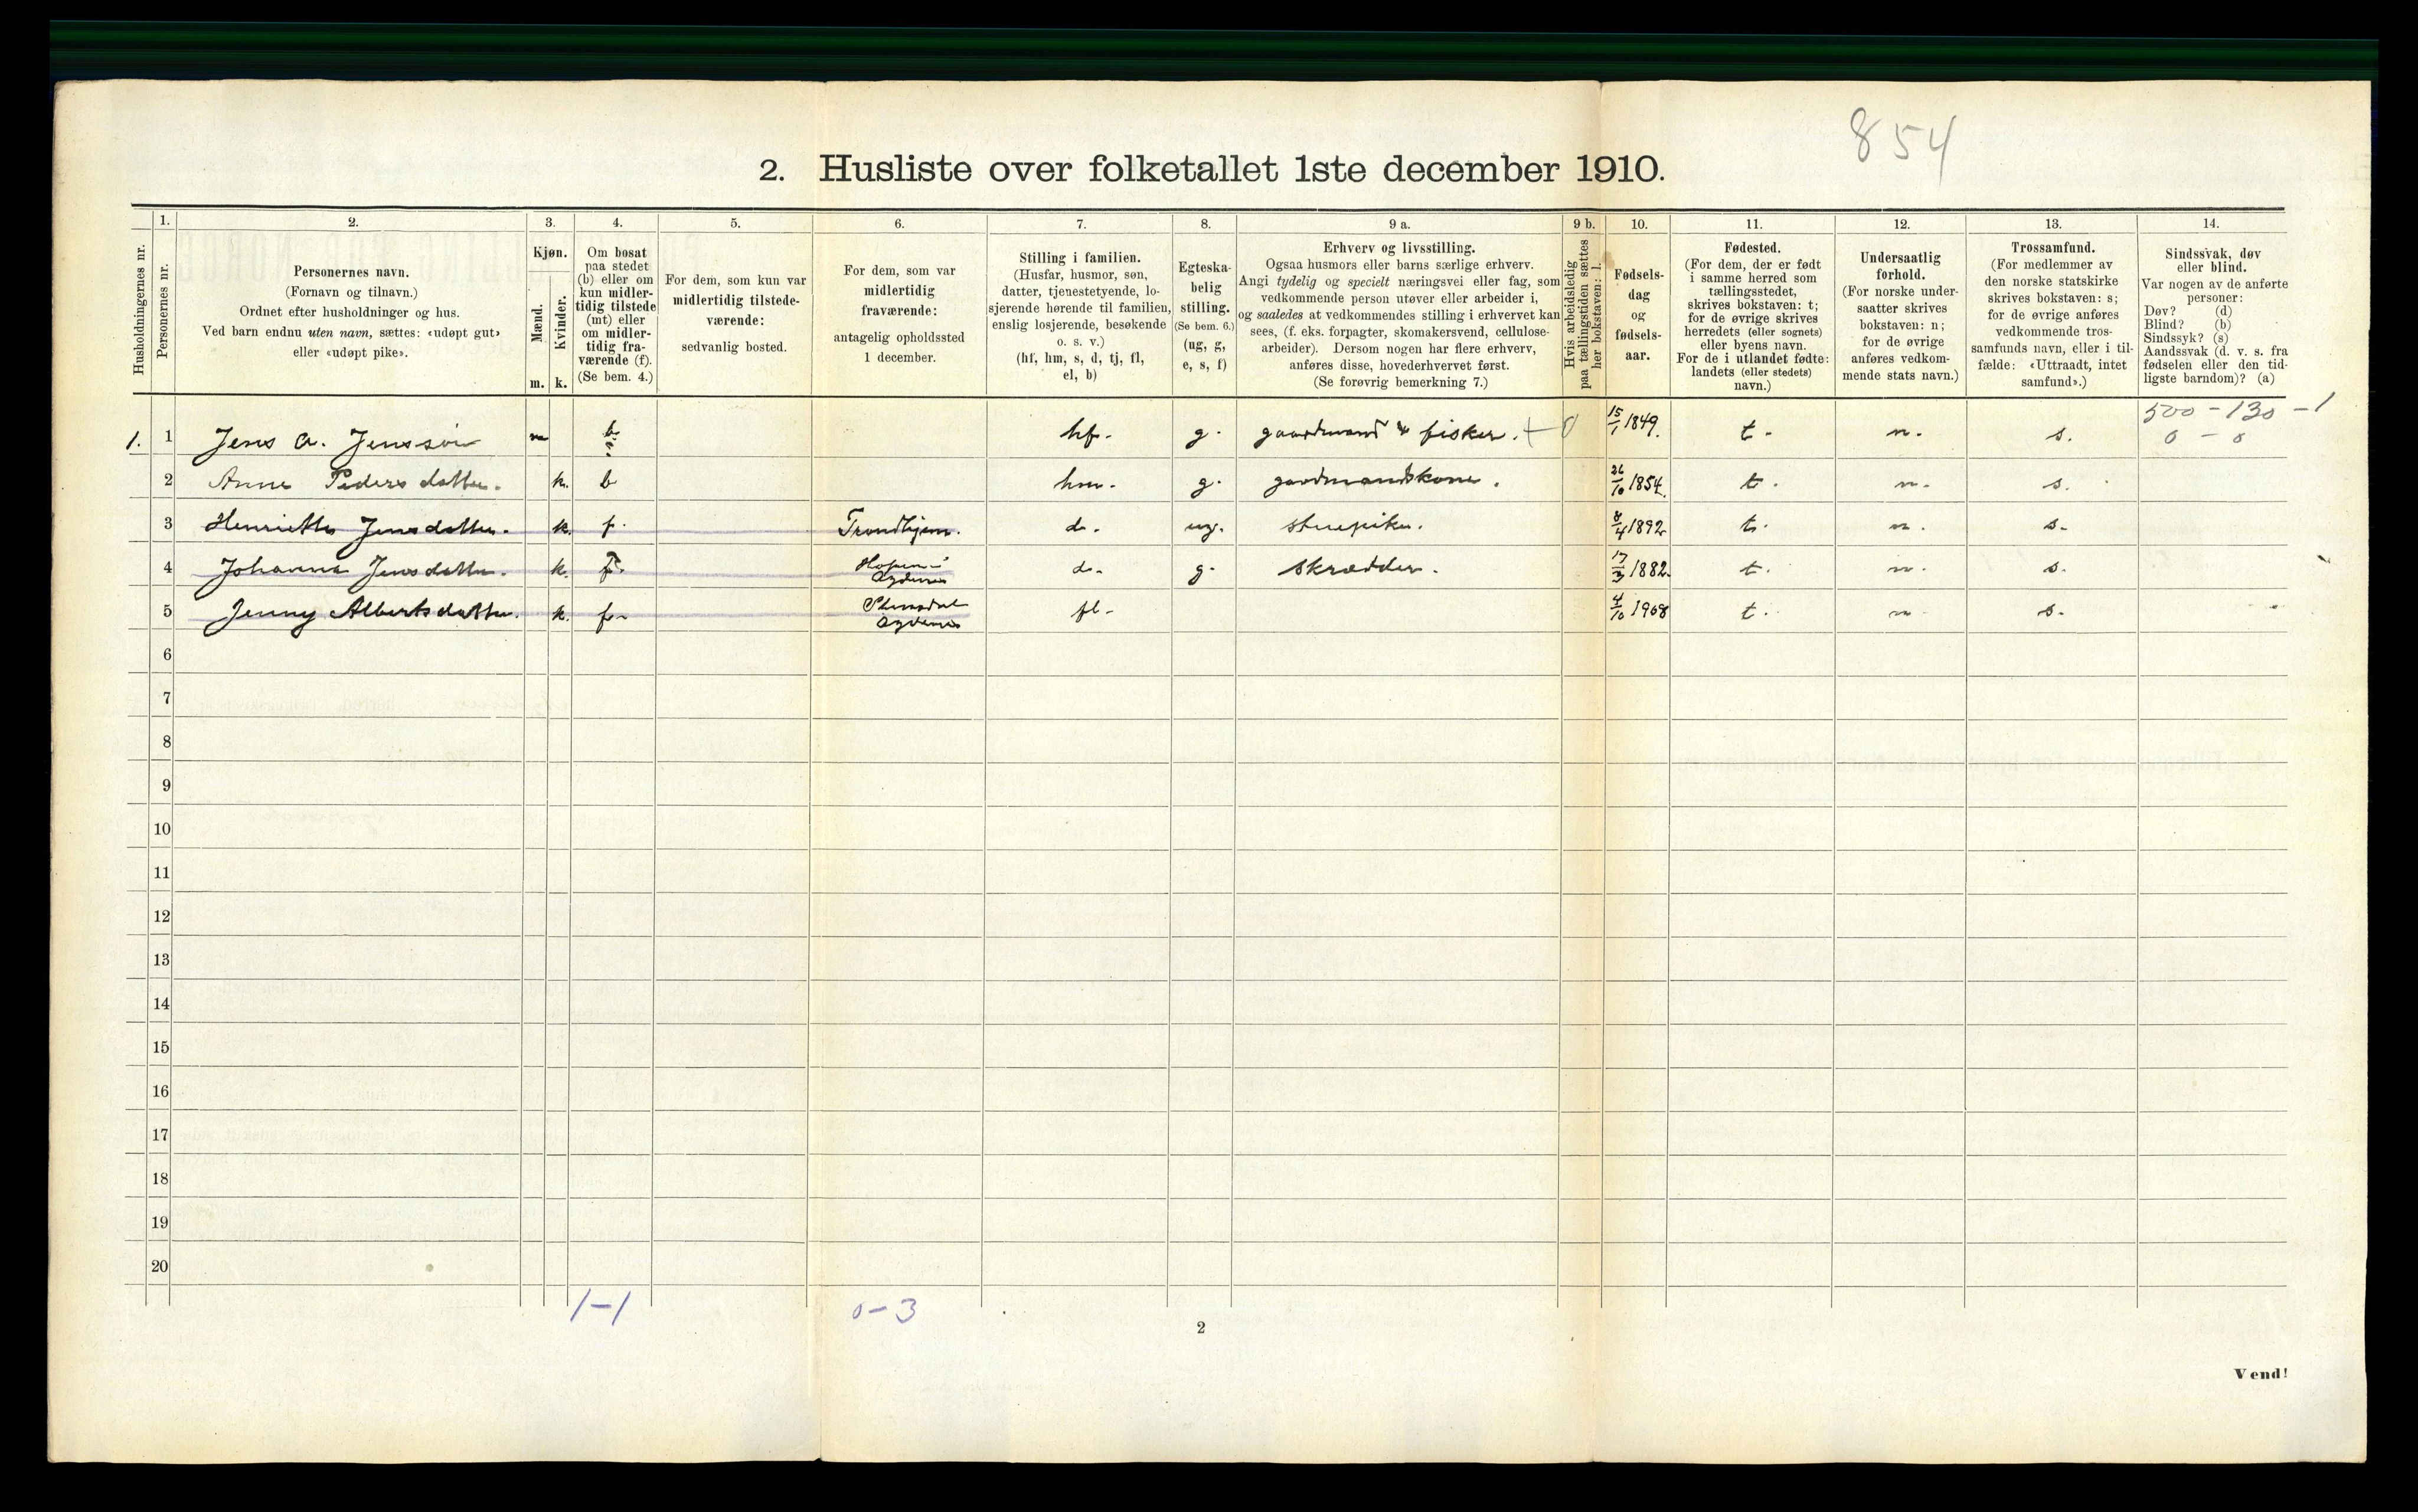 854
2. Husliste over folketallet 1ste december 1910.
Husholdningernes nr.
1.
Personernes nr.
2.
Personernes navn.
(Fornavn og tilnavn.)
Ordnet efter husholdninger og hus.
Ved barn endnu uten navn, sættes: «udøpt gut»
eller «udøpt pike».
3.
Kjøn.
Mænd.
Kvinder.
m. k.
4.
Om bosat
paa stedet
(b) eller om
kun midler-
tidig tilstede
(mt) eller
om midler-
tidig fra-
værende (f).
(Se bem. 4.)
5.
For dem, som kun var
midlertidig tilstede-
værende:
sedvanlig bosted.
6.
For dem, som var
midlertidig
fraværende:
antagelig opholdssted
1 december.
7.
Stilling i familien.
(Husfar, husmor, søn,
datter, tjenestetyende, lo-
sjerende hørende til familien,
enslig losjerende, besøkende
o. s. v.)
(hf, hm, s, d, tj, fl,
el, b)
8.
Egteska-
belig
stilling.
(Se bem. 6.)
(ug, g,
e, s, f)
9 a.
Erhverv og livsstilling.
Ogsaa husmors eller barns særlige erhverv.
Angi tydelig og specielt næringsvei eller fag, som
vedkommende person utøver eller arbeider i,
og saaledes at vedkommendes stilling i erhvervet kan
sees, (f. eks. forpagter, skomakersvend, cellulose-
arbeider). Dersom nogen har flere erhverv,
anføres disse, hovederhvervet først.
(Se forøvrig bemerkning 7.)
9 b.
Hvis arbeidsledig
paa tællingstiden sættes
her bokstaven: l.
10.
Fødsels-
dag
og
fødsels-
aar.
11.
Fødested.
(For dem, der er født
i samme herred som
tællingsstedet,
skrives bokstaven: t;
for de øvrige skrives
herredets (eller sognets)
eller byens navn.
For de i utlandet fødte:
landets (eller stedets)
navn.)
12.
Undersaatlig
forhold.
(For norske under-
saatter skrives
bokstaven: n;
for de øvrige
anføres vedkom-
mende stats navn.)
13.
Trossamfund.
(For medlemmer av
den norske statskirke
skrives bokstaven: s;
for de øvrige anføres
vedkommende tros-
samfunds navn, eller i til-
fælde: «Uttraadt, intet
samfund».)
14.
Sindssvak, døv
eller blind.
Var nogen av de anførte
personer:
Døv? (d)
Blind? (b)
Sindssyk? (s)
Aandssvak (d. v. s. fra
fødselen eller den tid-
ligste barndom)? (a)
500 - 130 - 1
1. 1 Jens A. Jenssøn m b hf. g. gaardmand & fisker. + 0 15/1 1849. t. n. s. 0 - 0
2 Anne Pedersdatter. k. b hm. g. gardmandskone. 26/10 1854. t. n. s.
3 Henriette Jensdatter. k. f. Trondhjem. d. ug. stuepike. 8/4 1892 t. n. s.
4 Johanna Jensdatter. k. f. d. g. skrædder. 17/3 1882. t. n. s.
5 Jenny Albertsdatter. k. f. fl. 4/10 1908 t. n. s.
6
7
8
9
10
11
12
13
14
15
16
17
18
19
20
1-1 0-3
2
Vend!